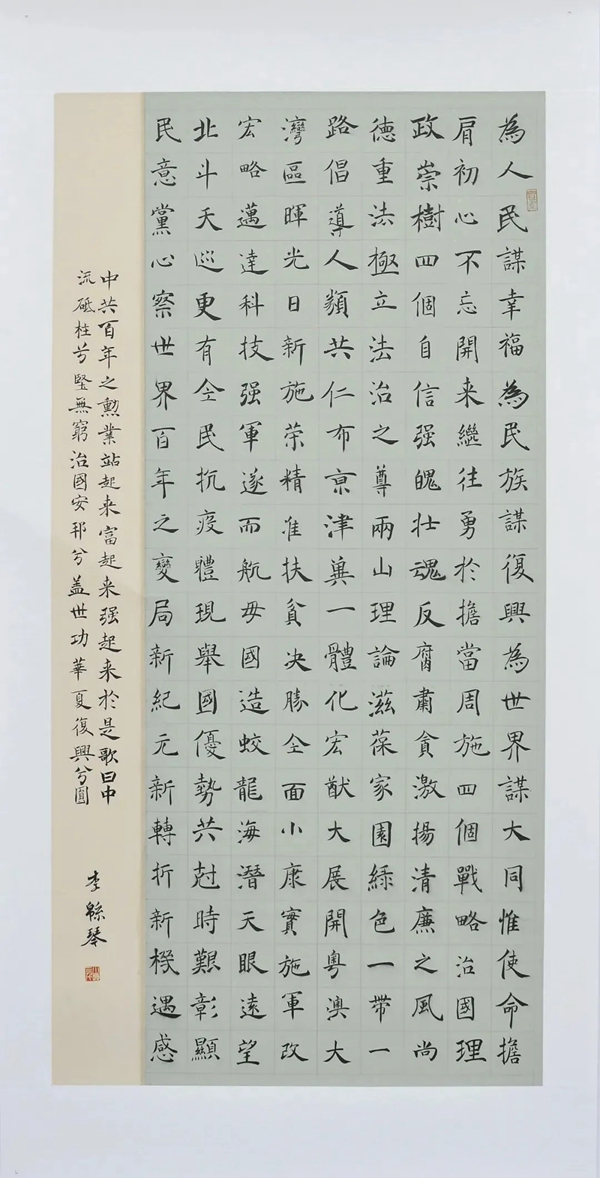 為人民謀幸福為民族謀復興為世界謀大同惟使命擔
肩初心不忘開来繼往勇於擔當周施四個戰略治國理
政崇樹四個自信强魄壮魂反腐肅貪激揚清廉之風尚
德重法極立法治之尊兩山理論滋葆家園緑色一帶一
路倡導人類共仁布京津冀一體化宏猷大展開粤澳大
灣區暉光日新施策精准扶貧决勝全面小康實施軍改
宏略邁達科技强軍遂而航母國造蛟龍海潛天眼遠望
北斗天巡更有全民抗疫體現舉國優勢共尅時艱彰顯
民意黨心察世界百年之變局新紀元新轉折新機遇感
中共百年之勲業站起来富起来强起来於是歌曰中
流砥柱兮堅無窮治國安邦兮盖世功華夏復興兮圓
李緜琴